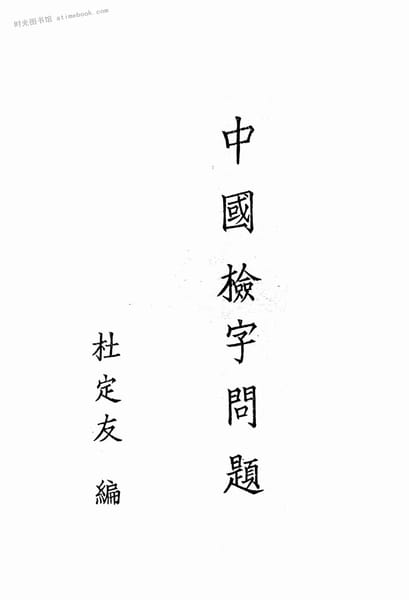 时光图书馆 atimebook.com
中國檢字問題
杜定友 編